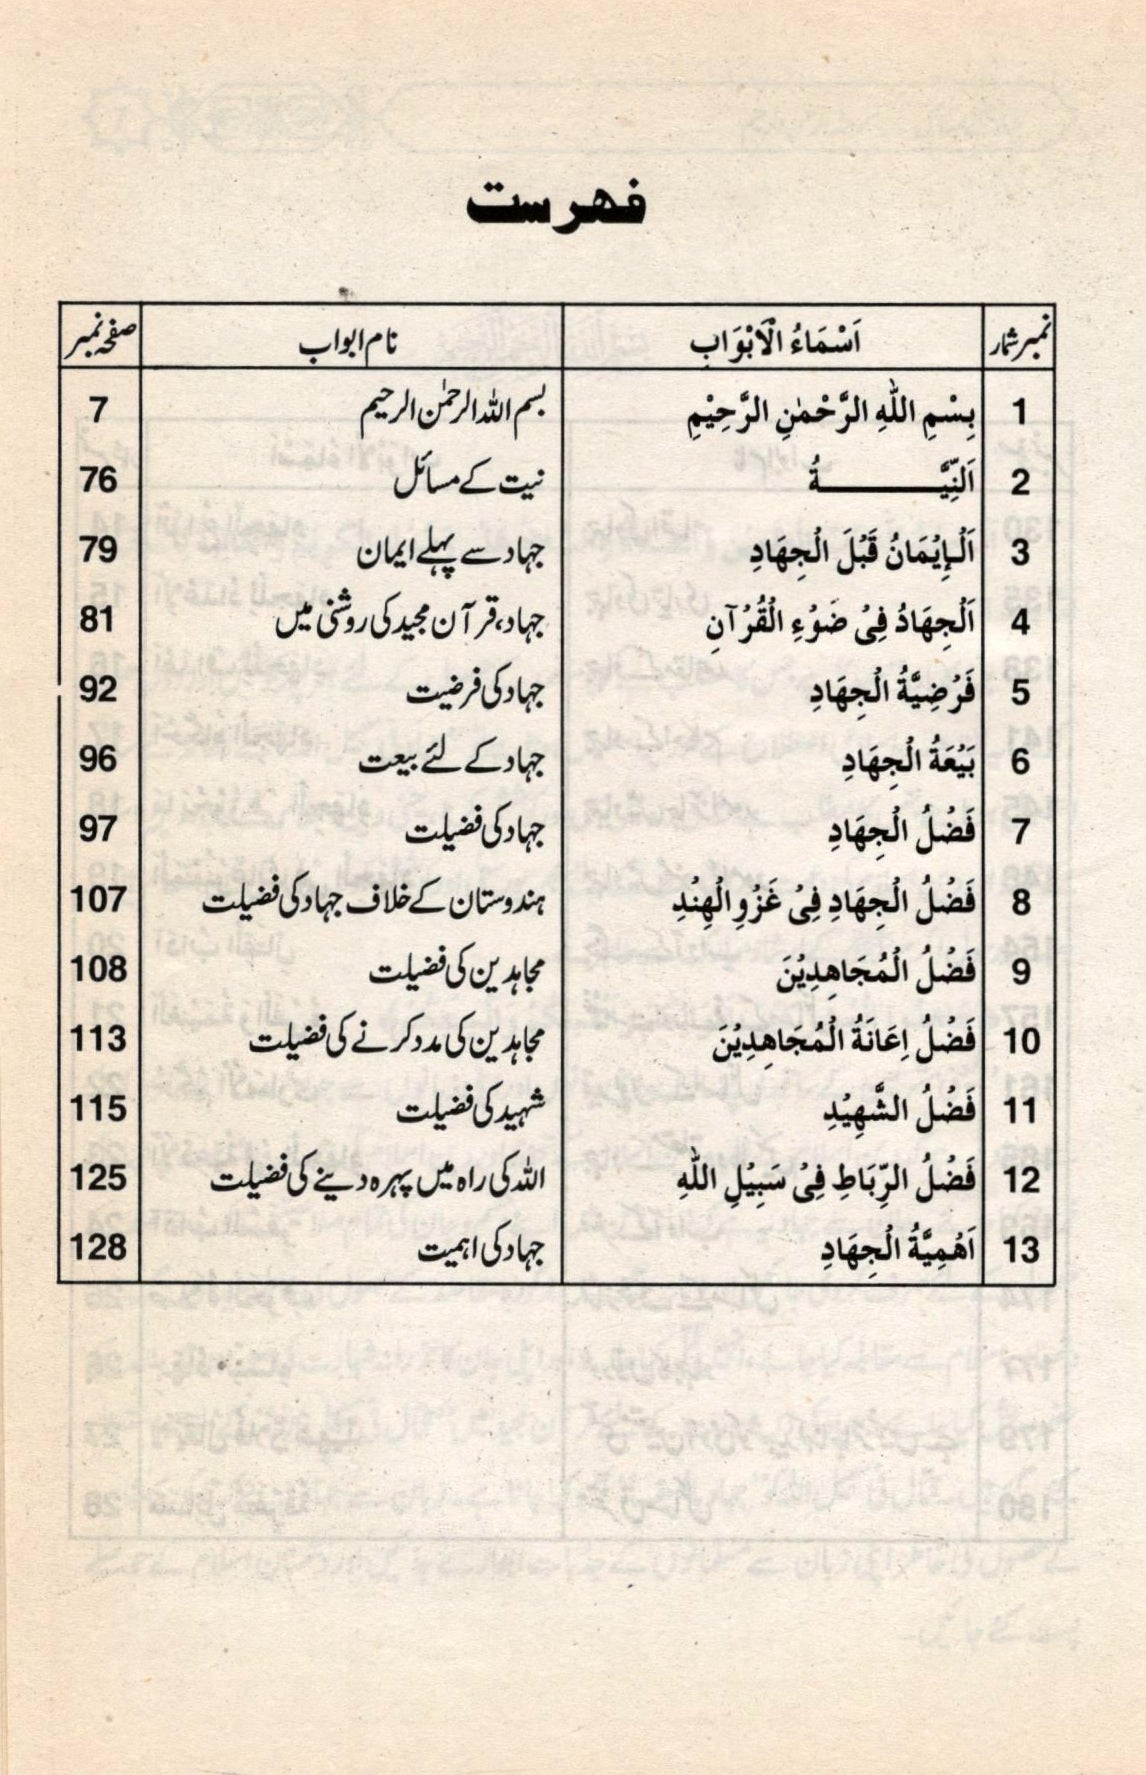 فہرست
نمبر شمار اَسْمَاءُ الْاَبْوَابِ نام ابواب صفحہ نمبر
1 بِسْمِ اللّٰهِ الرَّحْمٰنِ الرَّحِيْمِ بسم اللہ الرحمٰن الرحیم 7
2 اَلنِّيَّـــــــةُ نیت کے مسائل 76
3 اَلْإِيْمَانُ قَبْلَ الْجِهَادِ جہاد سے پہلے ایمان 79
4 اَلْجِهَادُ فِيْ ضَوْءِ الْقُرْآنِ جہاد، قرآن مجید کی روشنی میں 81
5 فَرْضِيَّةُ الْجِهَادِ جہاد کی فرضیت 92
6 بَيْعَةُ الْجِهَادِ جہاد کے لئے بیعت 96
7 فَضْلُ الْجِهَادِ جہاد کی فضیلت 97
8 فَضْلُ الْجِهَادِ فِيْ غَزْوِ الْهِنْدِ ہندوستان کے خلاف جہاد کی فضیلت 107
9 فَضْلُ الْمُجَاهِدِيْنَ مجاہدین کی فضیلت 108
10 فَضْلُ اِعَانَةُ الْمُجَاهِدِيْنَ مجاہدین کی مدد کرنے کی فضیلت 113
11 فَضْلُ الشَّهِيْدِ شہید کی فضیلت 115
12 فَضْلُ الرِّبَاطِ فِيْ سَبِيْلِ اللّٰهِ اللہ کی راہ میں پہرہ دینے کی فضیلت 125
13 اَهْمِيَّةُ الْجِهَادِ جہاد کی اہمیت 128